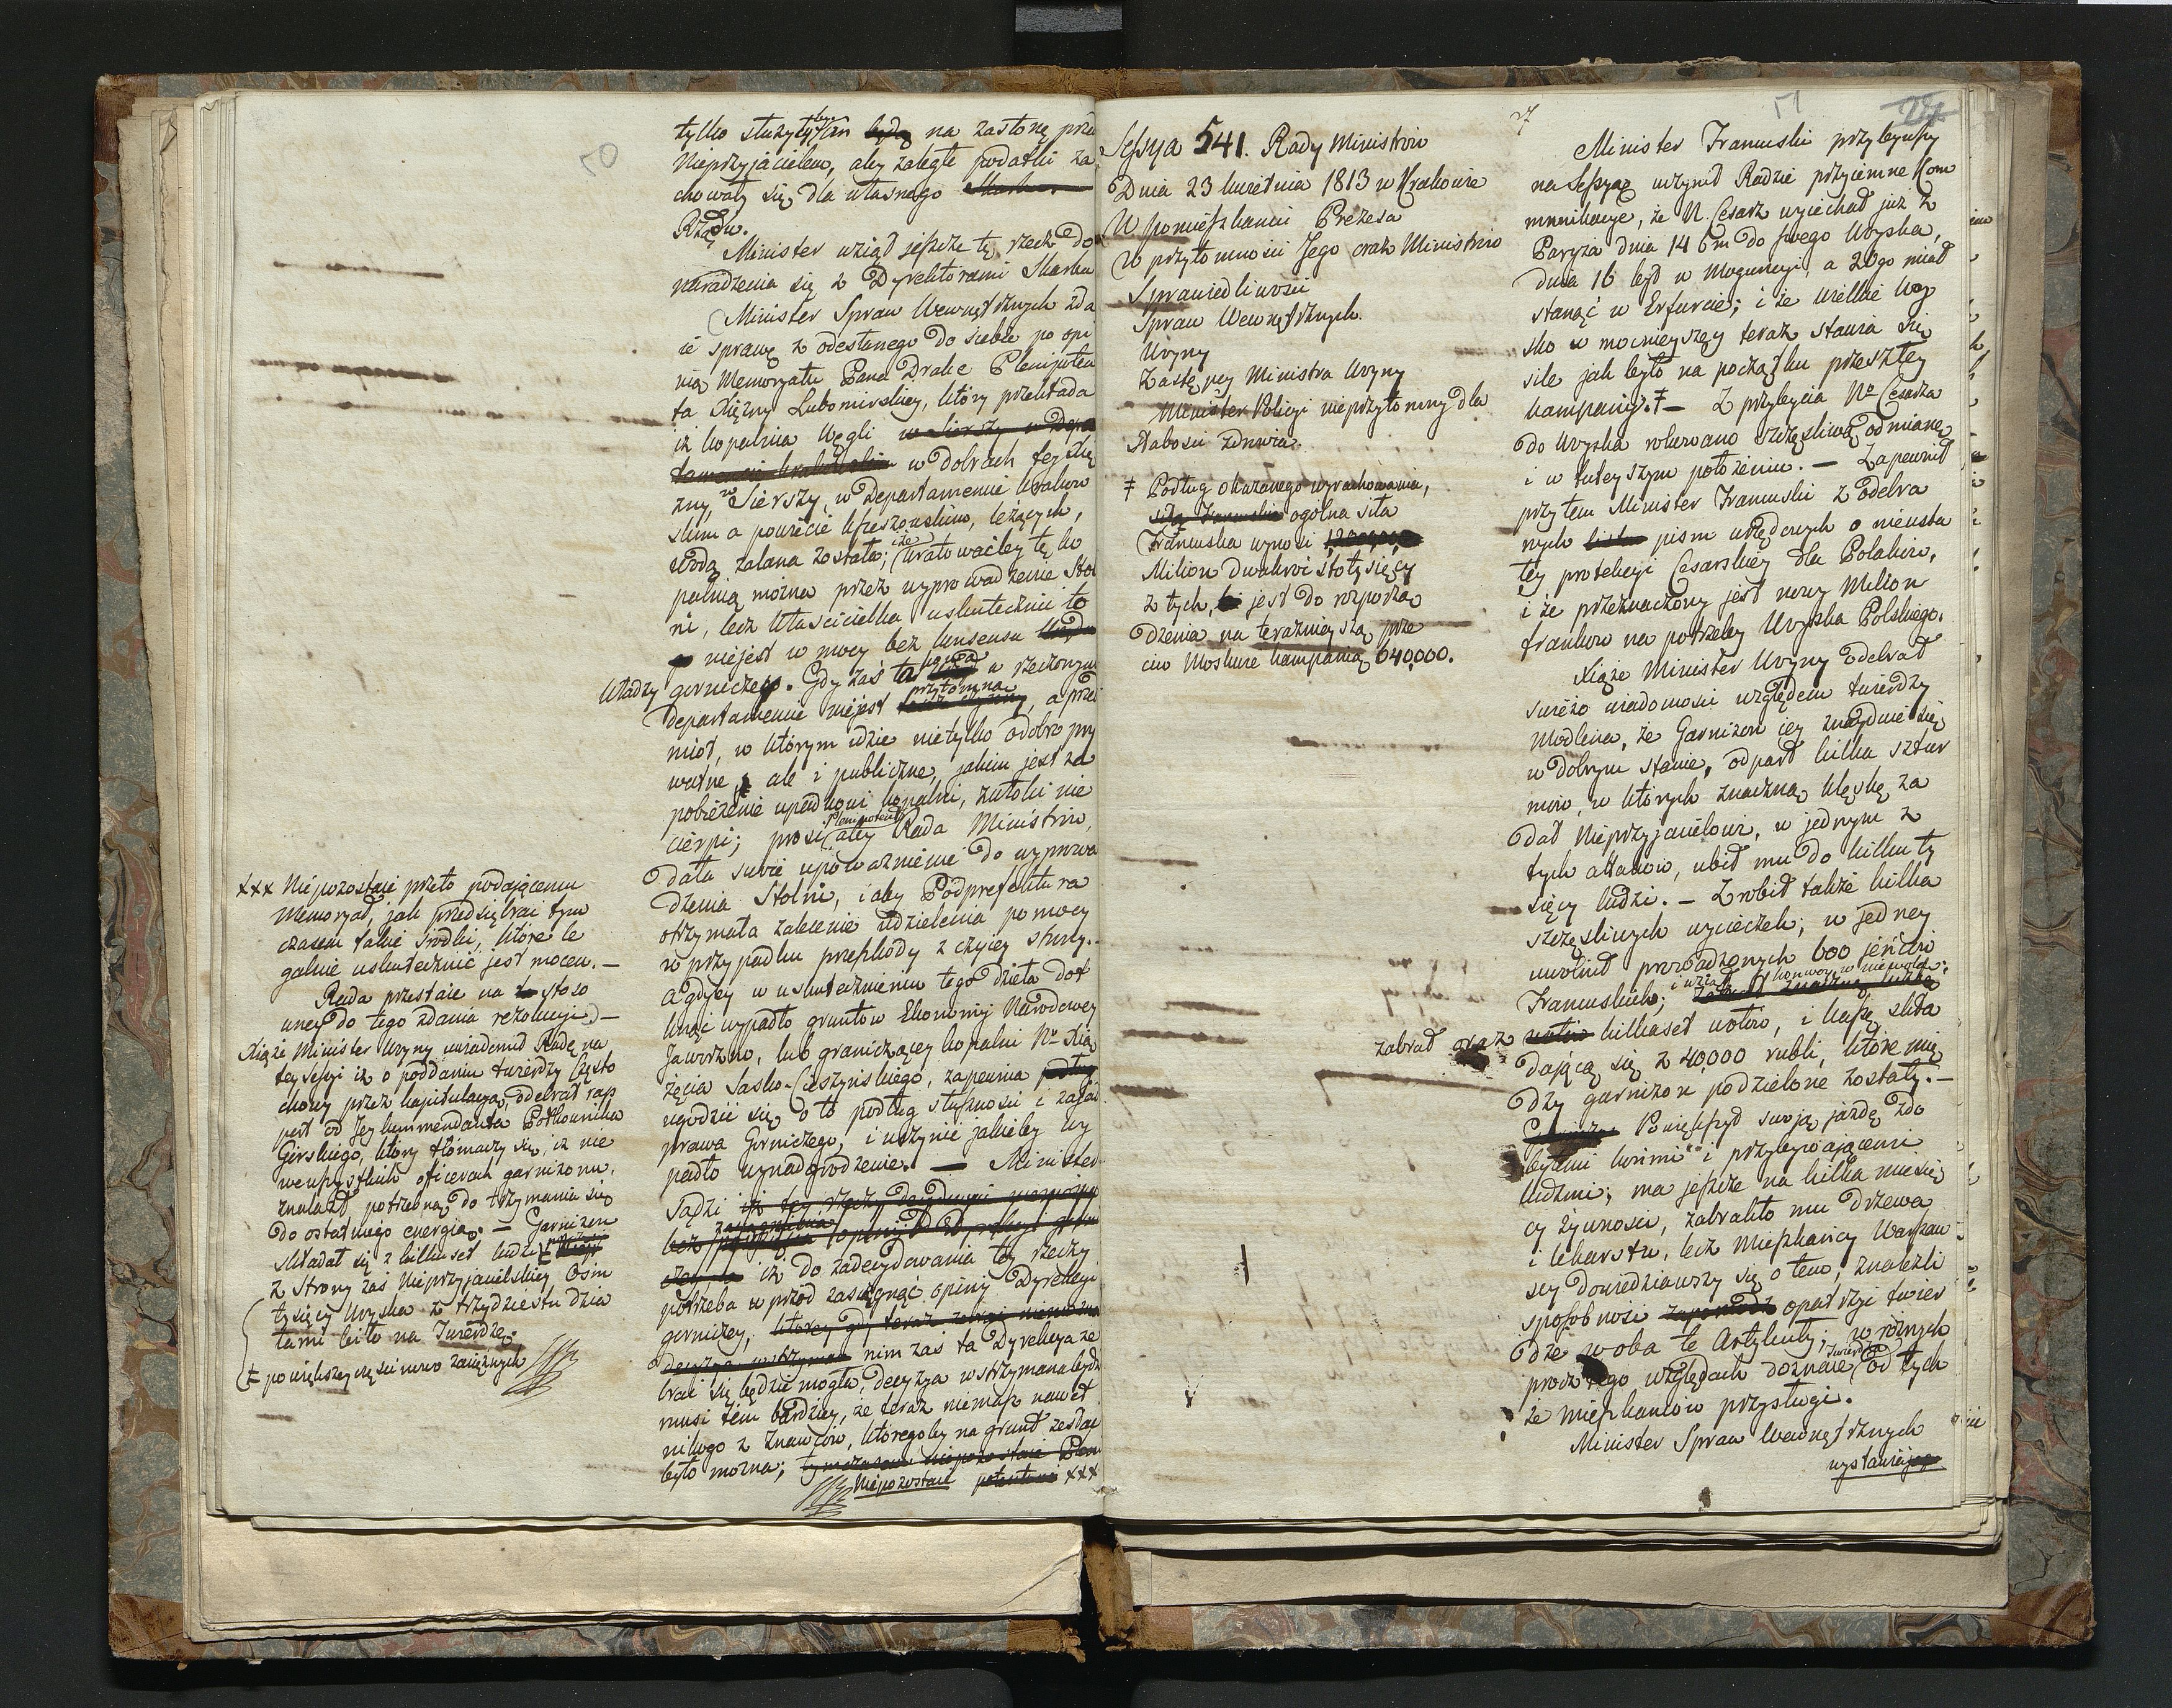 50
tylko służyłyby Im na zasłonę przed
Nieprzyjacielem, aby zaległe podatki za
chowały się dla własnego
Rządu.
Minister wziął jeszcze tę rzecz do
naradzenia się z Dyrektorami Skarbu
Minister Spraw Wewnętrznych zda
ie sprawę z odesłanego do siebie po opi
nią Memoryału Pana Drake Plenipoten
ta Xiężny Lubomirskiey, który przekłada
iż kopalnia Węgli w Sierszy w Depar
tamencie Krakowskim w dobrach tey Xię
żny, w Sierszy, w Departamencie Krakow
skim a powiecie Krzeszowskim, leżących,
wodą zalana została; iże uratowaćby tę ko
palnią można przez wyprowadzenie Stol
ni, lecz Właścicielka uskutecznić to
niejest w mocy bez konsensu
Władzy górniczego. Gdy zaś ta w rzeczonym
Departamencie niejest przytomna, a przed
miot, w którym idzie nietylko o dobro pry
watne, ale i publiczne, jakim jest za
pobieżenie upadkowi kopalni, zwłoki nie
cierpi; prosi Plenipotent aby Rada Ministrów,
dała swoie upoważnienie do wyprowa
dzenia Stolni, i aby Podprefektura
otrzymała zalecenie udzielenia pomocy
w przypadku przeszkody z czyiey strony.
A gdyby w uskutecznieniu tego dzieła dot
knąć wypadło gruntów Ekonomij Narodowey
Jaworzno, lub graniczącey kopalni N. Xią
żęcia Sasko-Cieszyńskiego, zapewnia
ugodzić się o to podług słuszności i zasad
prawa Górniczego, i uczynić jakieby wy
padło wynadgrodzenie. — Minister
sądzi
iż do zadecydowania tey rzeczy
potrzeba wprzód zasięgnąć opinij Dyrekcyi
górniczey,
nim zaś ta Dyrekcya ze
brać się będzie mogła, decyzya wstrzymana bydź
musi tém bardziey, że teraz niemasz nawet
nikogo z Znawców, któregoby na grunt zesłać
było można; tymczasem niepozostaie Plen
Niepozostaie potentowi xxx
xxx Niepozostaie przeto podającemu
Memoryał, jak przedsiębrać tym
czasem takie środki, które le
galnie uskutecznić jest mocen. —
Rada przestaie na stoso
waney do tego zdania rezolucyi. —
Xiąże Minister Woyny uwiadomił Radę na
tey Sessyi iż o poddaniu twierdzy Często
chowy przez kapitulacyą, odebrał rap
port od Jey kommendanta Półkownika
Górskiego, który tłómaczy się, iż nie
we wszystkich oficerach garnizonu,
znalazł potrzebną do trzymania się
do ostatniego energią. — Garnizon
składał się z kilkuset ludzi
z Strony zaś Nieprzyjacielskiey Ośm
tysięcy Woyska z trzydziestu dzia
łami było na Twierdzę.
‡ po większey części nowo zaciężnych
Sessya 541. Rady Ministrów
Dnia 23 kwietnia 1813 w Krakowie
W pomieszkaniu Prezesa
w przytomności Jego oraz Ministrów
Sprawiedliwości
Spraw Wewnętrznych.
Woyny
Zastępcy Ministra Woyny
Minister Policyi nieprzytomny dla
słabości zdrowia.
‡ Podług okazanego wyrachowania,
siła Francuska ogólna siła
Francuska wynosi
Milion dwakroć sto tysięcy
z tych, jest do rozporzą
dzenia na teraźnieyszą prze
ciw Moskwie kampanią 640,000.
7
51
Minister Francuski przybywszy
na Sessyą uczynił Radzie przyiemne Kom
munikacye, że N. Cesarz wyiechał już z
Paryża dnia 14 bm do swego Woyska,
dnia 16 był w Moguncyi, a 20go miał
stanąć w Erfurcie; i że wielkie Woy
sko w mocnieyszey teraz stawia się
sile jak było na początku przeszłey
kampanij. ‡ — Z przybycia No Cesarza
do Woyska rokowano szczęśliwą odmianę
i w tuteyszym położeniu. — Zapewnił
przytem Minister Francuski z odebra
nych pism urzędowych o nieusta
łey protekcyi Cesarskiey dla Polaków,
i że przeznaczony jest nowy Milion
franków na potrzeby Woyska Polskiego.
Xiąże Minister Woyny odebrał
świeżo wiadomości względem twierdzy
Modlina, że Garnizon iey znayduie się
w dobrym stanie, odparł kilka sztur
mów, w których znaczną klęskę za
dał Nieprzyjacielowi, w jednym z
tych attaków, ubił mu do kilku ty
sięcy ludzi. — Zrobił także kilka
szczęśliwych wycieczek; w jedney
uwolnił prowadzonych 600 jeńców
Francuskich; i wziął konwoy w niewolę;
zabrał oraz kilkaset wołów, i kassę skła
dającą się z 40,000 rubli, które mię
dzy garnizon podzielone zostały. —
Powiększył swoją jazdę zdo
bytemi końmi i przybywającemi
ludźmi; ma jeszcze na kilka miesię
cy żywności, zabrakło mu drzewa
i lekarstw, lecz Mieszkańcy Warszaw
scy dowiedziawszy się o tem, znaleźli
sposobność opatrzyć twier
dzę w oba te Artykuły; w różnych
prócz tego względach doznaie Twierdza od tych
że mieszkańców przysługi.
Minister Spraw Wewnętrznych
wystawiając